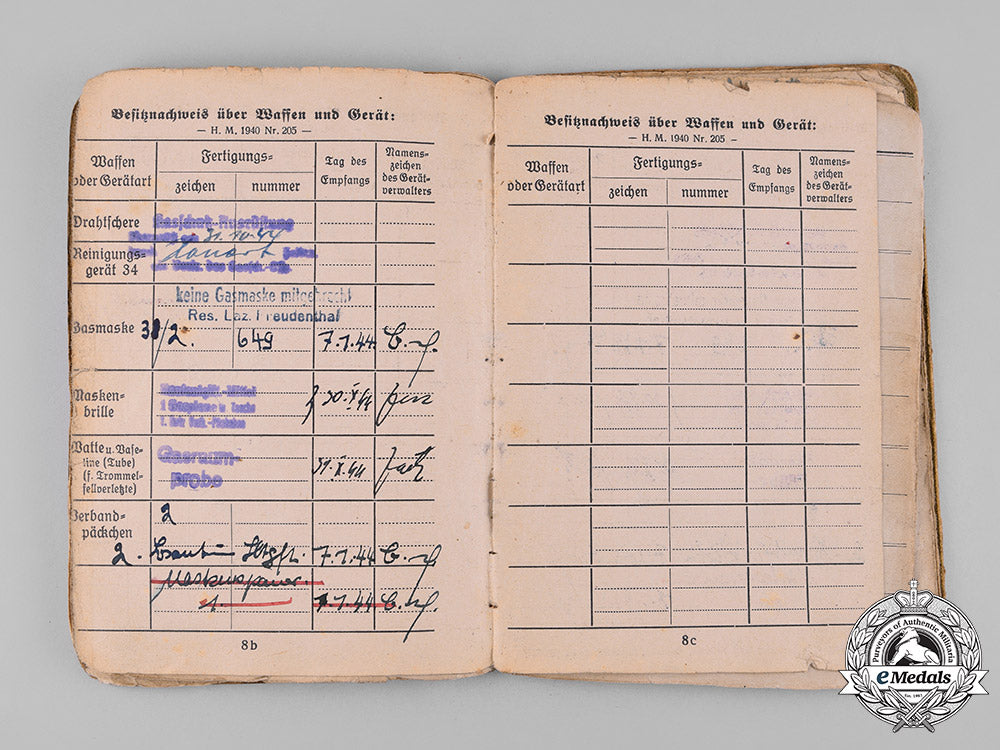 Besitznachweis über Waffen und Gerät:
— H. M. 1940 Nr. 205 —
Waffen
oder Gerätart
Fertigungs-
zeichen
nummer
Tag des
Empfangs
Namens-
zeichen
des Gerät-
verwalters
Drahtschere
Gasschutz-Ausrüstung
31.10.44
Reinigungs-
gerät 34
keine Gasmaske mitgebracht
Res. Laz. Freudenthal
Gasmaske
38/2.
649
7.1.44
Masken-
brille
1 Gasplane u. Tasche
30.X.44
Watte u. Vase-
line (Tube)
(f. Trommel-
fellverletzte)
Gasraum-
probe
31.X.44
Verband-
päckchen
2
2.
7.1.44
1
7.1.44
8b
Besitznachweis über Waffen und Gerät:
— H. M. 1940 Nr. 205 -
Waffen
oder Gerätart
Fertigungs-
zeichen
nummer
Tag des
Empfangs
Namens-
zeichen
des Gerät-
verwalters
8c
Purveyors of Authentic Militaria
eMedals